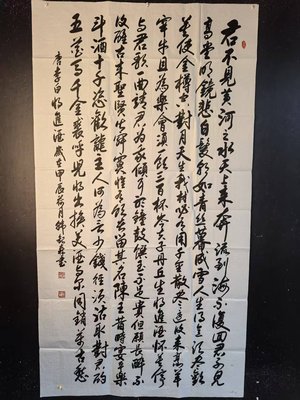 君不見黄河之水天上来奔流到海不復回君不見
高堂明鏡悲白髮朝如青丝暮成雪人生得意須尽歡
莫使金樽空對月天生我材必有用千金散尽还復来烹羊
宰牛且為樂會須一飲三百杯岑夫子丹丘生将進酒杯莫停
与君歌一曲請君为我倾耳听钟鼓饌玉不足貴但願長醉不
復醒古来聖賢皆寂寞惟有飲者留其名陳王昔時宴平樂
斗酒十千恣歡謔主人何為言少錢徑須沽取對君酌
五花馬千金裘呼兒将出换美酒与尔同銷萬古愁
唐李白将進酒歲在甲辰月韩書